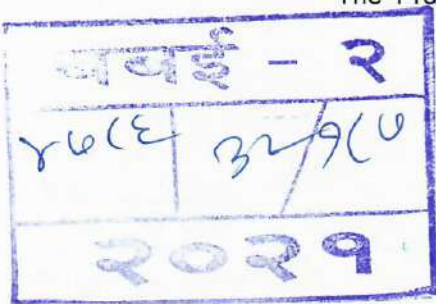 बबई - २
४७८६ ३२/१८७
२०२१